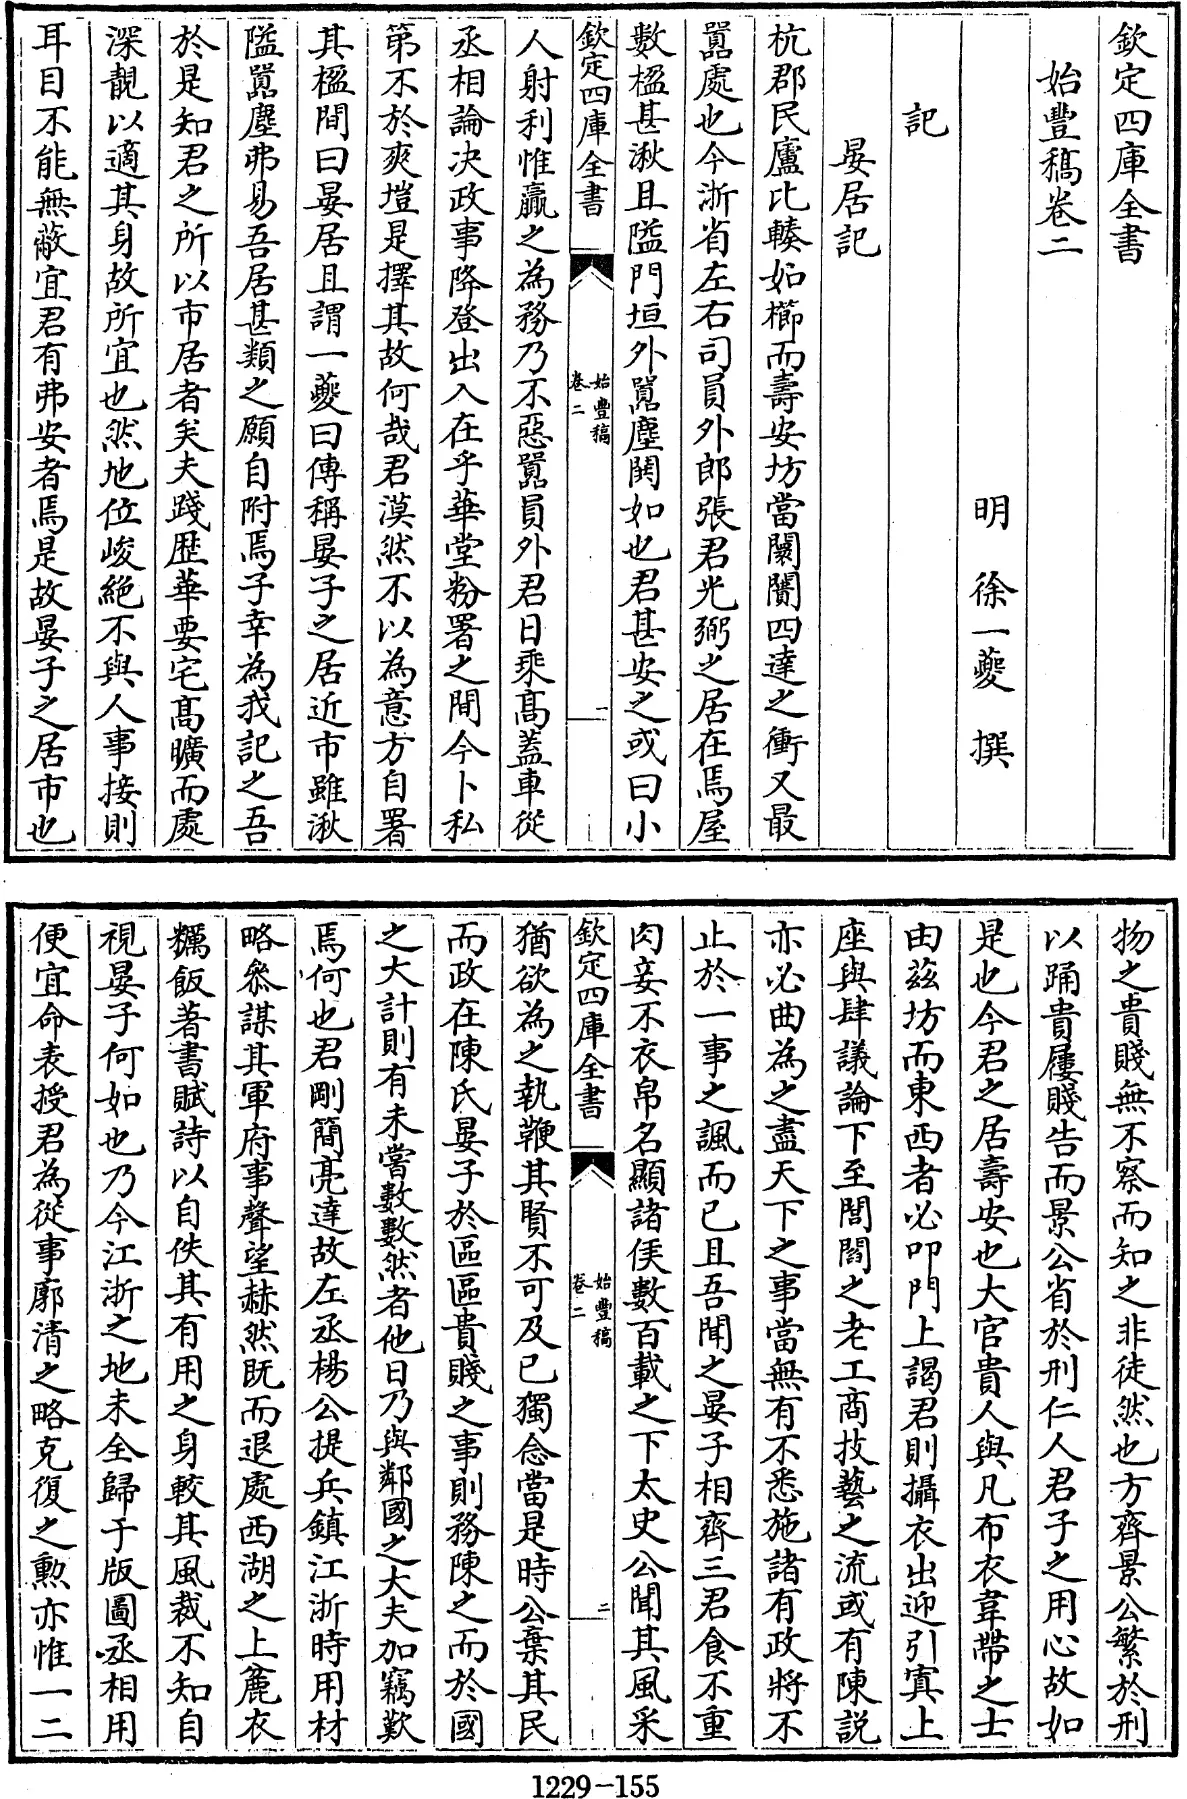 欽定四庫全書
始豐稿卷二
明 徐一夔 撰
記
晏居記
杭郡民廬比輳如櫛而壽安坊當闤闠四達之衝又最
囂處也今浙省左右司員外郎張君光弼之居在焉屋
數楹甚湫且隘門垣外囂塵閧如也君甚安之或曰小
欽定四庫全書
始豐稿
卷二
一
人射利惟贏之為務乃不惡囂員外君日乘髙蓋車從
丞相論决政事降登出入在乎華堂粉署之間今卜私
第不於爽塏是擇其故何哉君漠然不以為意方自署
其楹間曰晏居且謂一夔曰傳稱晏子之居近市雖湫
隘囂塵弗易吾居甚類之願自附焉子幸為我記之吾
於是知君之所以市居者矣夫踐歴華要宅髙曠而處
深靚以適其身故所宜也然地位峻絶不與人事接則
耳目不能無蔽宜君有弗安者焉是故晏子之居市也
物之貴賤無不察而知之非徒然也方齊景公繁於刑
以踊貴屨賤告而景公省於刑仁人君子之用心故如
是也今君之居壽安也大官貴人與凡布衣韋帶之士
由茲坊而東西者必叩門上謁君則攝衣出迎引寘上
座與肆議論下至閭閻之老工商技藝之流或有陳說
亦必曲為之盡天下之事當無有不悉施諸有政將不
止於一事之諷而已且吾聞之晏子相齊三君食不重
肉妾不衣帛名顯諸侯數百載之下太史公聞其風采
欽定四庫全書
始豐稿
卷二
二
猶欲為之執鞭其賢不可及已獨念當是時公棄其民
而政在陳氏晏子於區區貴賤之事則務陳之而於國
之大計則有未嘗數數然者他日乃與鄰國之大夫加竊歎
焉何也君剛簡亮達故左丞楊公提兵鎮江浙時用材
略叅謀其軍府事聲望赫然既而退處西湖之上麄衣
糲飯著書賦詩以自佚其有用之身較其風裁不知自
視晏子何如也乃今江浙之地未全歸于版圖丞相用
便宜命表授君為從事廓清之略克復之勲亦惟一二
1229-155